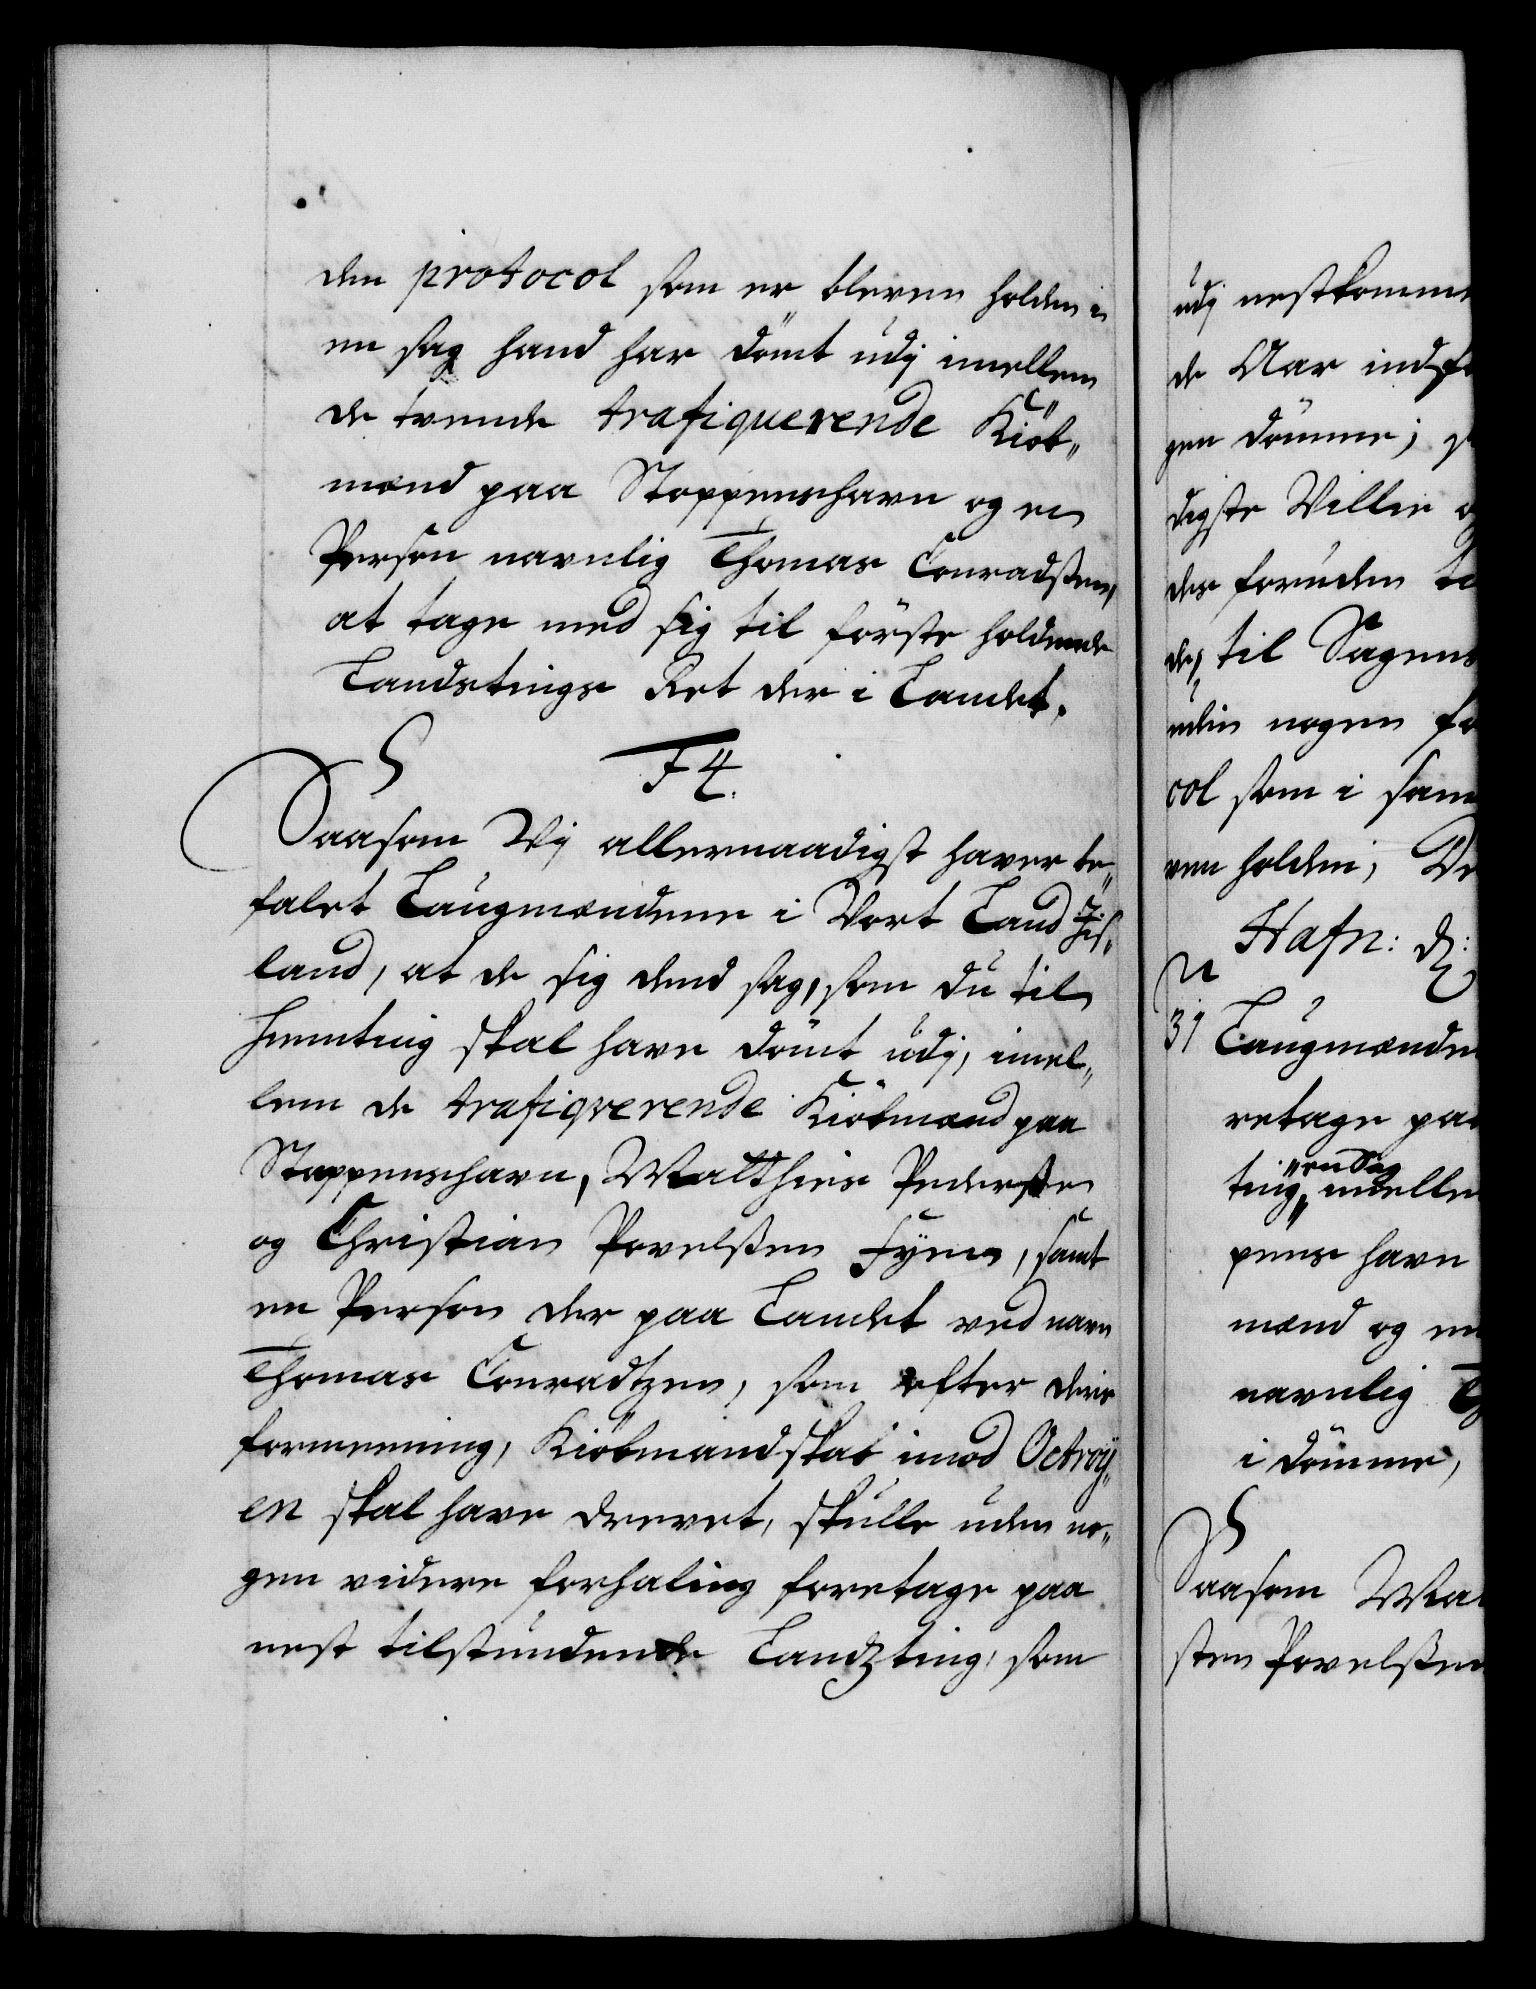 den protocol som er bleven holden i
en sag hand har dömt udj imellem
de tvende trafiquerende Kiöb„
mænd paa Stappenshavn og en
Person navnlig Thomas Conradßen,
at tage med sig til förste holdende
Landstings Ret der i Landet.
F4.
Saasom Vij allernaadigst haver be„
falet Laugmændene i Vort Land Is„
land, at de sig dend sag, som du til
hiemting skal have dömt udj, imel„
lem de trafiqverende Kiöbmænd paa
Stappenshavn, Matthies Pederßen
og Christian Povelßen Fyen, samt
en Person der paa Landet ved navn
Thomas Conradtzen, som efter deris
formeening, Kiöbmandskab imod Octroÿ„
en skal have drevet, skulle uden no„
gen videre forhaling foretage paa
nest tilstundende Landzting, som
udj nestkomme
de Aar indf
gen dömme;
digste Villie
des foruden
der til Sagens
uden nogen
col som i sam
ven holden;
Hafn: d:
31 Laugmænden
retage paa
en Sag
ting, imellem
pens havn
mænd og en
navnlig
i dömme,
Saasom Mat
sten Povelßen